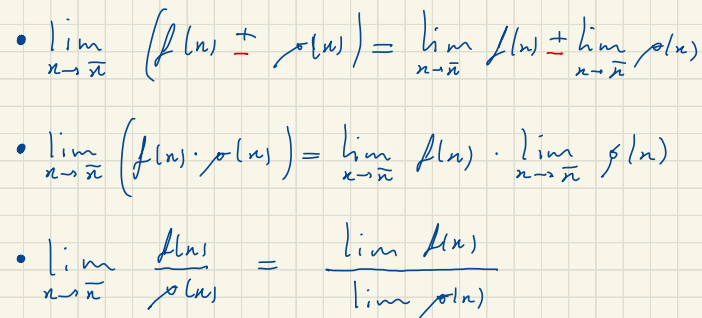 • lim x→x̄ (f(x) ± g(x)) = lim x→x̄ f(x) ± lim x→x̄ g(x)
• lim x→x̄ (f(x) · g(x)) = lim x→x̄ f(x) · lim x→x̄ g(x)
• lim x→x̄ f(x)/g(x) = lim f(x)/lim g(x)